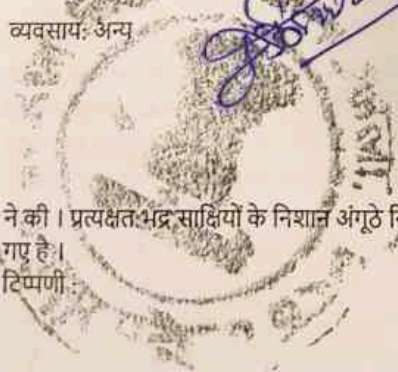 व्यवसाय: अन्य
ने की । प्रत्यक्षतः भद्र साक्षियों के निशान अंगूठे
गए है ।
टिप्पणी :